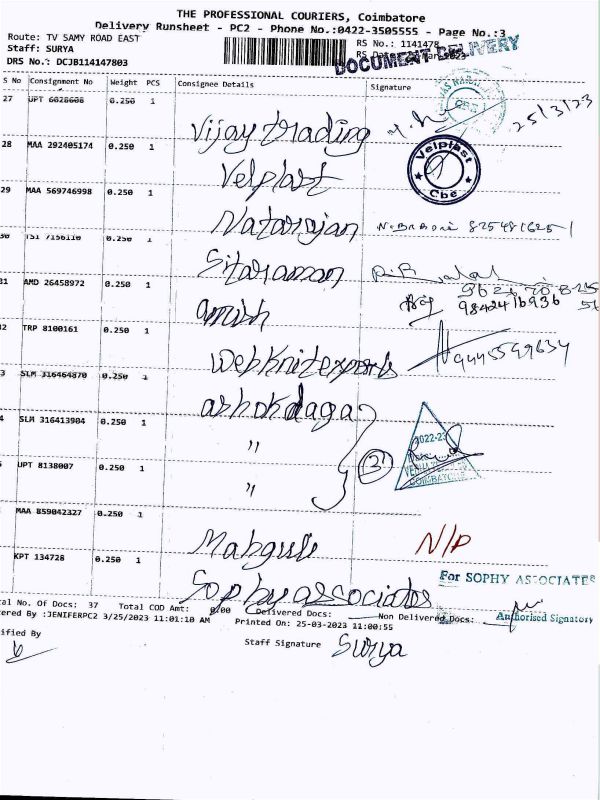 THE PROFESSIONAL COURIERS, Coimbatore
Delivery Runsheet - PC2 - Phone No.:0422-3505555 - Page No.:3
Route: TV SAMY ROAD EAST
RS No.: 1141478
Staff: SURYA
DOCUMENT DELIVERY
DRS No.: DCJB114147803
S No Consignment No Weight PCS Consignee Details Signature
27 UPT 6028608 0.250 1 Vijay trading 25/3/23
28 MAA 292405174 0.250 1 Velplast Velplast Cbe
29 MAA 569746998 0.250 1 Natarajan
30 TSI 7156110 0.250 1 Sitaraman
31 AMD 26458972 0.250 1 amish 9842416936
2 TRP 8100161 0.250 1 Webknit exports 9445549634
3 SLM 316464870 0.250 1 ashokdaga
4 SLM 316413904 0.250 1 " 3 2022-23 COIMBATORE
UPT 8138007 0.250 1 "
MAA 859042327 0.250 1 N/P
KPT 134728 0.250 1 Sophy associates For SOPHY ASSOCIATES
al No. Of Docs: 37 Total COD Amt: 0/00 Delivered Docs: Non Delivered Docs: Authorised Signatory
ered By :JENIFERPC2 3/25/2023 11:01:10 AM Printed On: 25-03-2023 11:00:55
ified By Staff Signature Surya